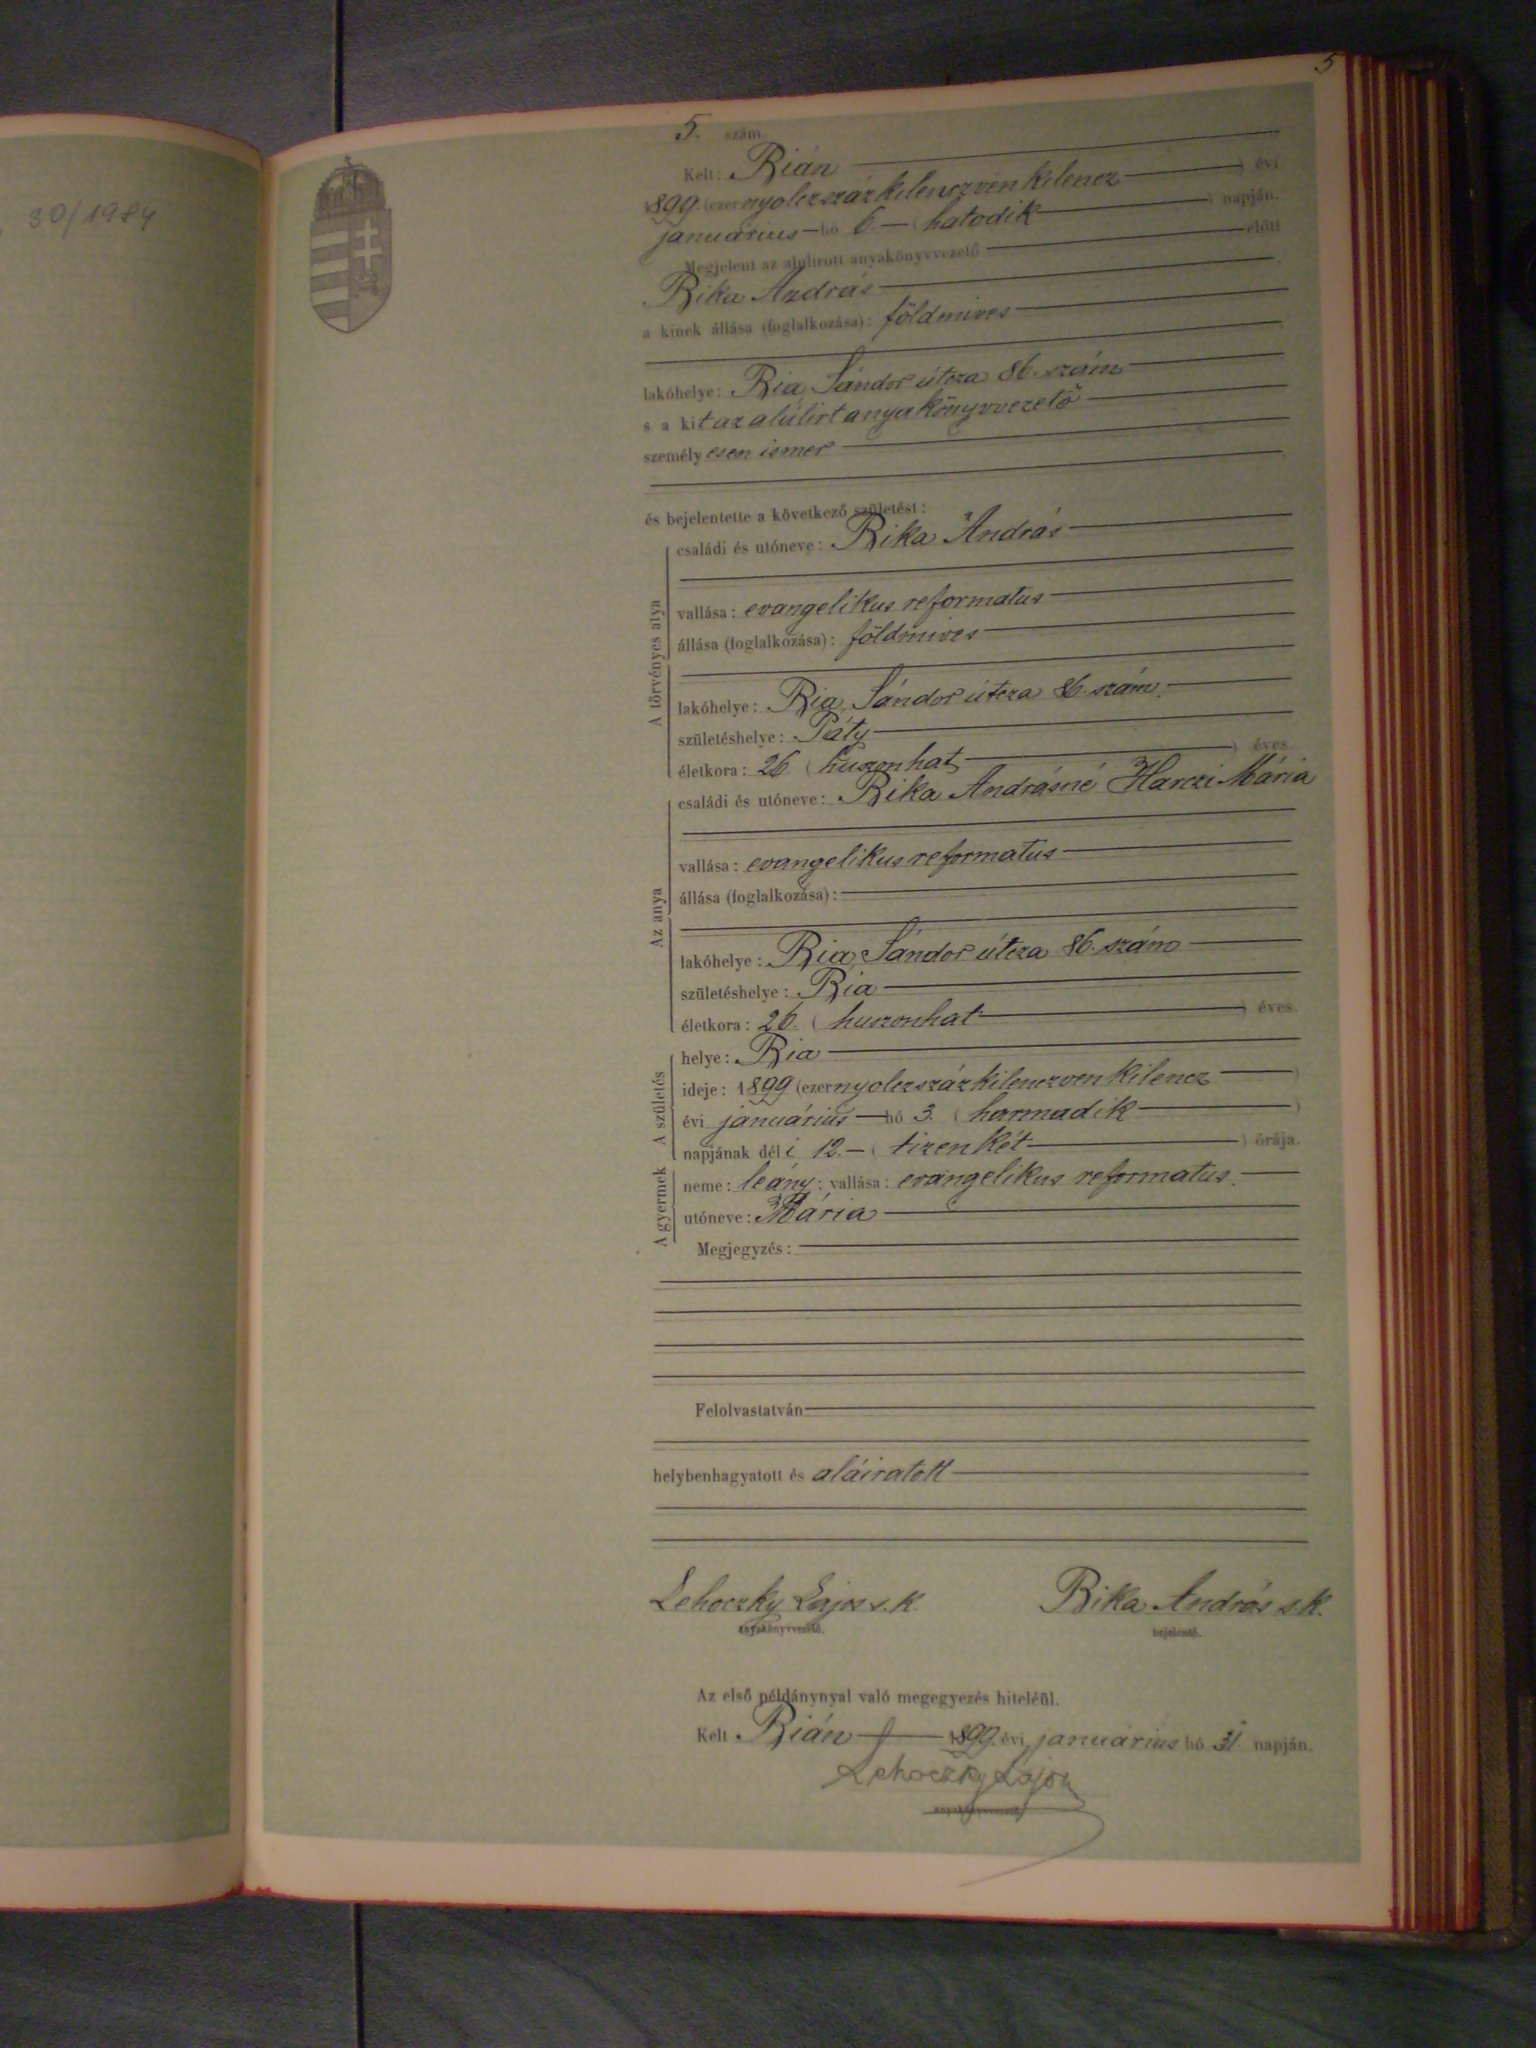 30/1984
5
5. szám.
Kelt: Bián ) évi
1899. (ezernyolczszázkilenczvenkilencz ) napján.
januárius hó 6. ( hatodik
Megjelent az alulirott anyakönyvvezető előtt
Bika András
a kinek állása (foglalkozása): földmives
lakóhelye: Bia, Sándor útcza 86. szám
s a kit az alúlirt anyakönyvvezető
személyesen ismer
és bejelentette a következő születést:
A törvényes atya
családi és utóneve: Bika András
vallása: evangelikus reformatus
állása (foglalkozása): földmives
lakóhelye: Bia, Sándor útcza 86. szám.
születéshelye: Páty
életkora: 26 ( huszonhat ) éves.
Az anya
családi és utóneve: Bika Andrásné Harczi Mária
vallása: evangelikus reformatus
állása (foglalkozása):
lakóhelye: Bia, Sándor útcza 86. szám
születéshelye: Bia
életkora: 26. ( huszonhat ) éves.
A születés
helye: Bia
ideje: 1899 (ezernyolczszázkilenczvenkilencz )
évi januárius hó 3. ( harmadik )
napjának déli 12. ( tizenkét ) órája.
A gyermek
neme: leány; vallása: evangelikus reformatus.
utóneve: Mária
Megjegyzés:
Felolvastatván
helybenhagyatott és aláiratott
Lehoczky Lajos s. k. Bika András s. k.
anyakönyvvezető. bejelentő.
Az első példánynyal való megegyezés hiteléül.
Kelt Bián 1899. évi januárius hó 31 napján.
Lehoczky Lajos
anyakönyvvezető